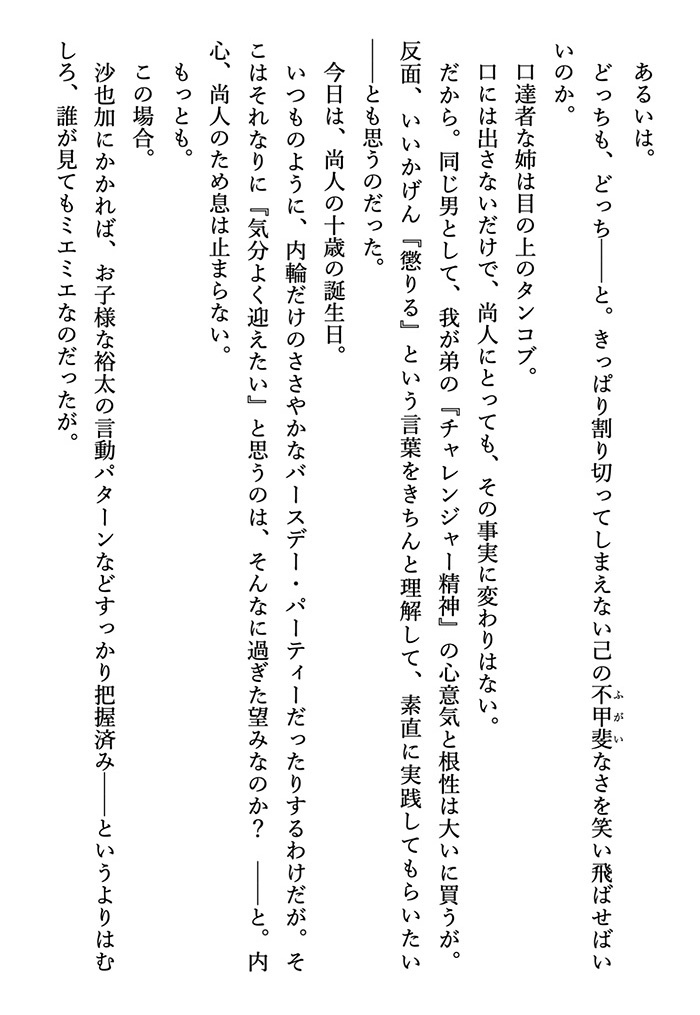 あるいは。
どっちも、どっち――と。きっぱり割り切ってしまえない己の不甲斐なさを笑い飛ばせばい
いのか。
口達者な姉は目の上のタンコブ。
口には出さないだけで、尚人にとっても、その事実に変わりはない。
だから。同じ男として、我が弟の『チャレンジャー精神』の心意気と根性は大いに買うが。
反面、いいかげん『懲りる』という言葉をきちんと理解して、素直に実践してもらいたい
――とも思うのだった。
今日は、尚人の十歳の誕生日。
いつものように、内輪だけのささやかなバースデー・パーティーだったりするわけだが。そ
こはそれなりに『気分よく迎えたい』と思うのは、そんなに過ぎた望みなのか？　――と。内
心、尚人のため息は止まらない。
もっとも。
この場合。
沙也加にかかれば、お子様な裕太の言動パターンなどすっかり把握済み――というよりはむ
しろ、誰が見てもミエミエなのだったが。
ふがい